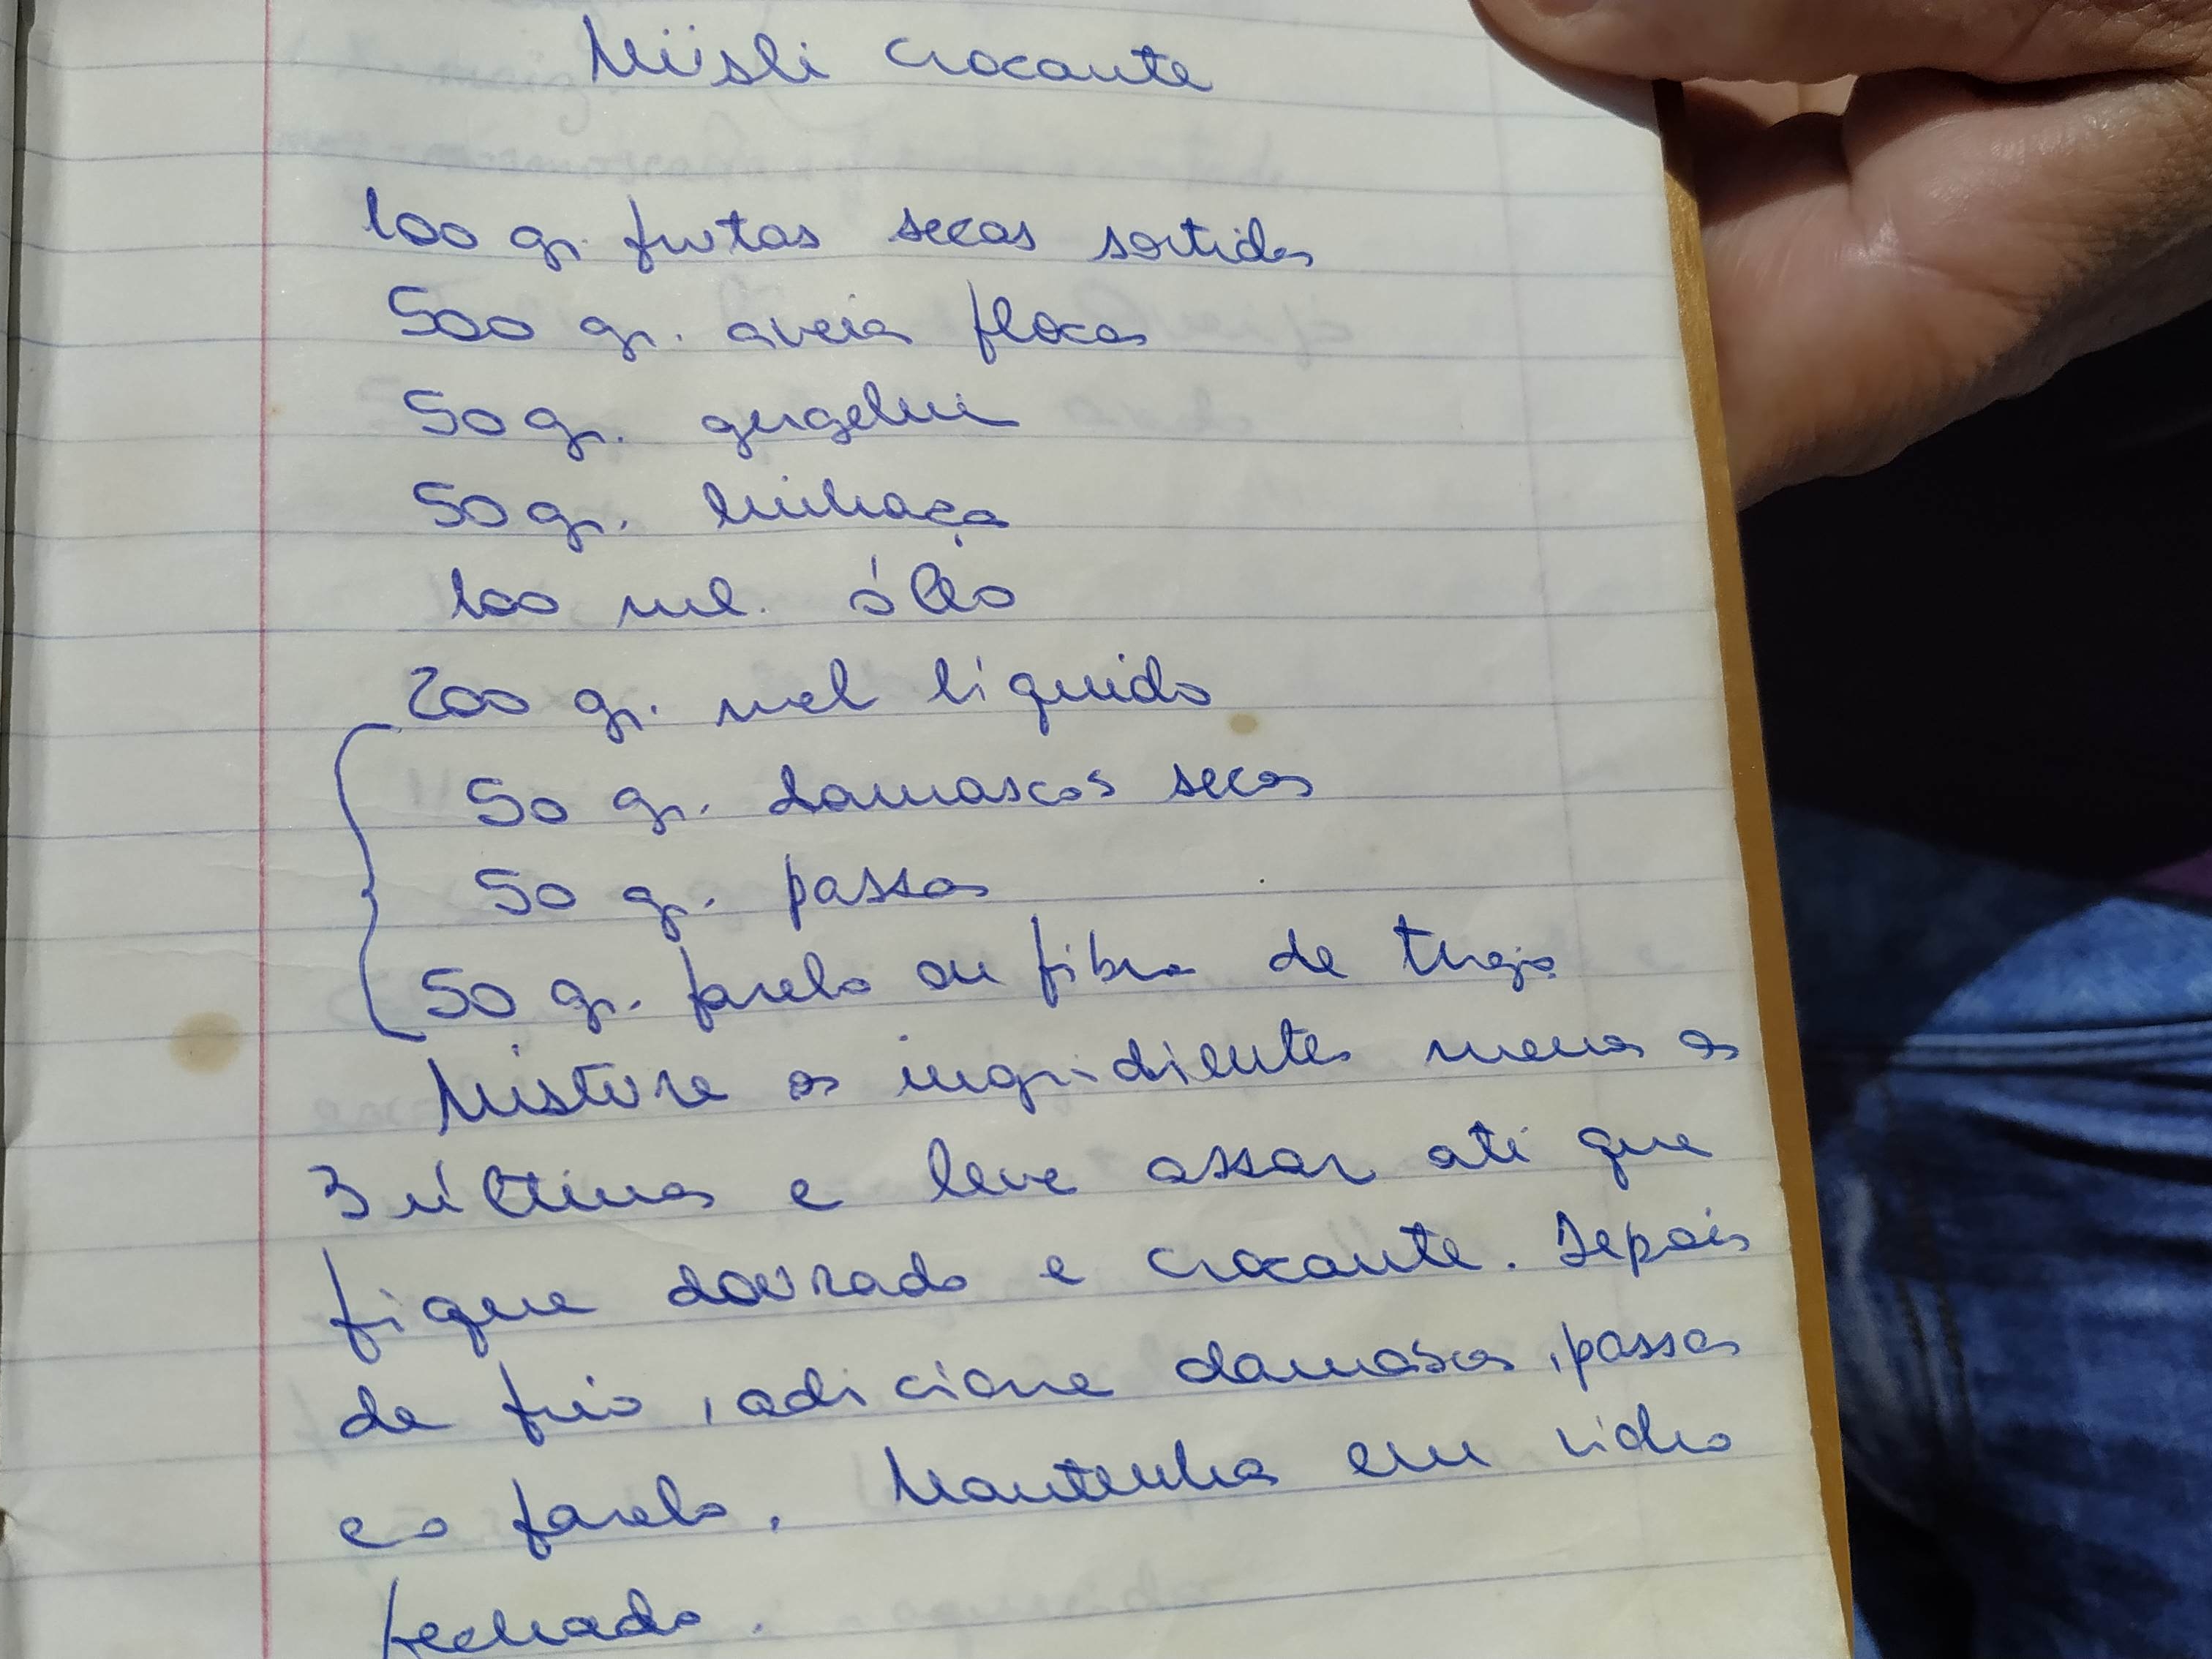 Müsli crocante
100 gr. frutas secas sortidas
500 gr. aveia flocos
50 gr. gergelim
50 gr. linhaça
100 ml. óleo
200 gr. mel líquido
50 gr. damascos secos
50 gr. passas
50 gr. farelo ou fibra de trigo
Misture os ingredientes menos os
3 últimos e leve assar até que
fique dourado e crocante. Depois
de frio, adicione damascos, passas
e o farelo. Mantenha em vidro
fechado.